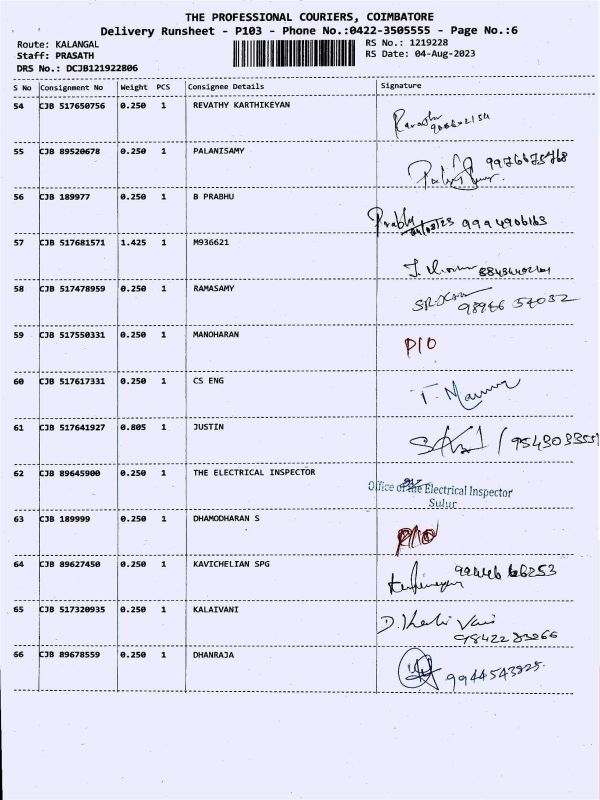 THE PROFESSIONAL COURIERS, COIMBATORE
Delivery Runsheet - P103 - Phone No.:0422-3505555 - Page No.:6
Route: KALANGAL RS No.: 1219228
Staff: PRASATH RS Date: 04-Aug-2023
DRS No.: DCJB121922806
S No Consignment No Weight PCS Consignee Details Signature
54 CJB 517650756 0.250 1 REVATHY KARTHIKEYAN
55 CJB 89520678 0.250 1 PALANISAMY
56 CJB 189977 0.250 1 B PRABHU
Prabhu 04/08/23 9994906163
57 CJB 517681571 1.425 1 M936621
58 CJB 517478959 0.250 1 RAMASAMY
59 CJB 517550331 0.250 1 MANOHARAN
P10
60 CJB 517617331 0.250 1 CS ENG
61 CJB 517641927 0.805 1 JUSTIN
62 CJB 89645900 0.250 1 THE ELECTRICAL INSPECTOR
Office of the Electrical Inspector
Sulur
63 CJB 189999 0.250 1 DHAMODHARAN S
64 CJB 89627450 0.250 1 KAVICHELIAN SPG
65 CJB 517320935 0.250 1 KALAIVANI
66 CJB 89678559 0.250 1 DHANRAJA